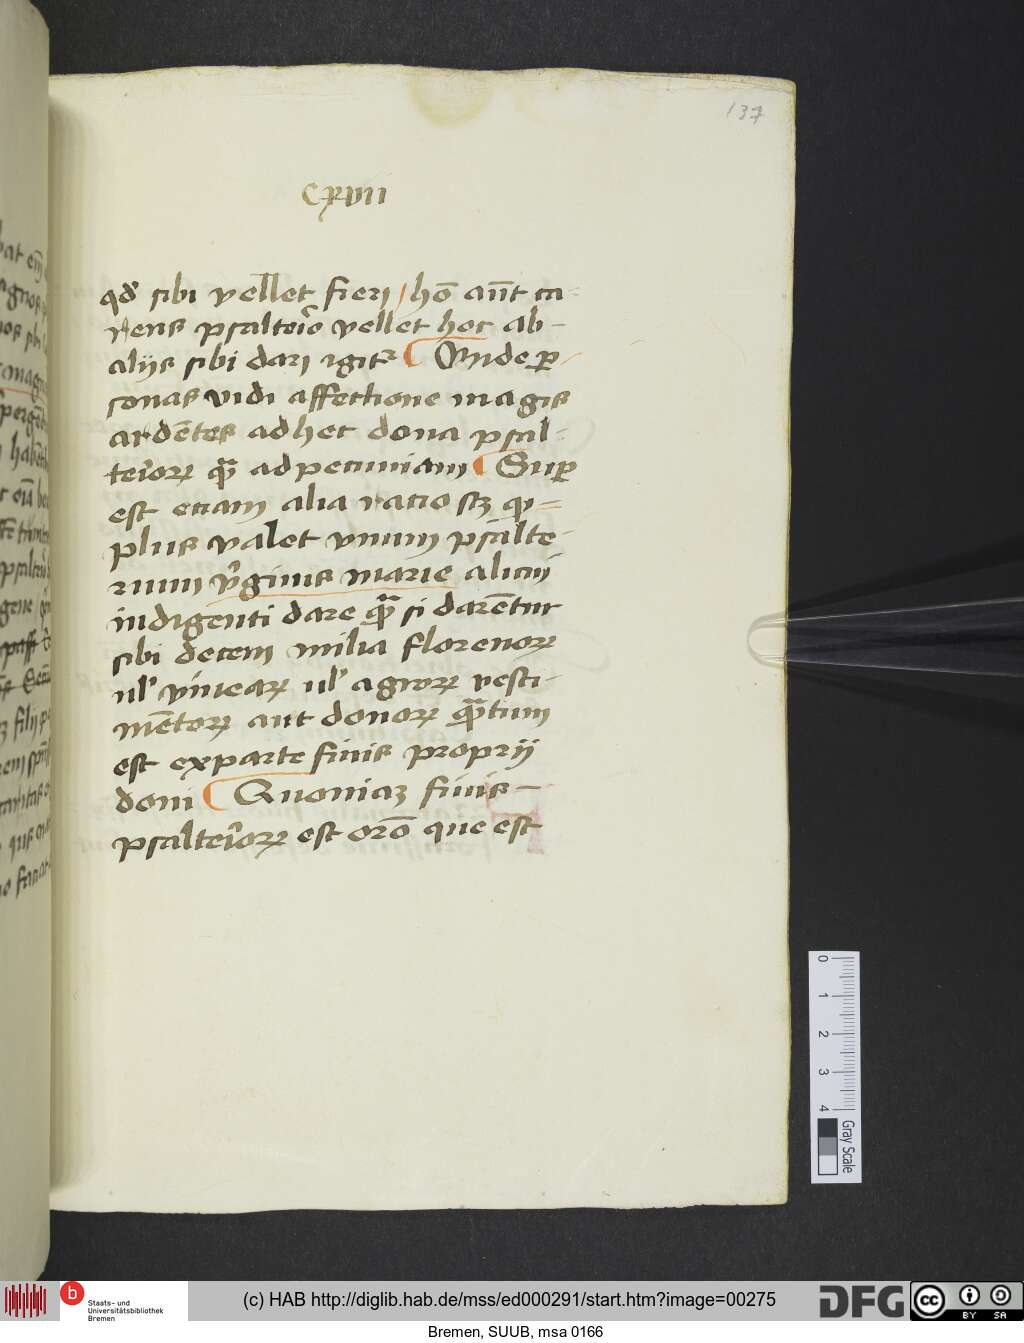 137
cxvii
qd' sibi vellet fieri / hō aūt ca-
rens psalteiō vellet hoc ab-
aliis sibi dari igit᷑ Vnde ꝑ-
sonas vidi affectione magis
ardētes ad hec dona psal-
teriorꝝ qᷓ ad pecuniam Suꝑ
est etiam alia ratio scꝫ qꝛ=
plus valet vnum psalte-
rium v̓ginis marie alicui
indigenti dare qᷓ si darētur
sibi decem milia florenorꝝ
ul' vinearꝝ ul' agrorꝝ vesti-
mētorꝝ aut donorꝝ qᷓtium
est ex parte finis proprii
doni Quoniaꝫ finis-
psalteriorꝝ est orō que est
0 1 2 3 4
Gray Scale
b Staats- und
Universitätsbibliothek
Bremen
(c) HAB http://diglib.hab.de/mss/ed000291/start.htm?image=00275
DFG
cc BY SA
Bremen, SUUB, msa 0166